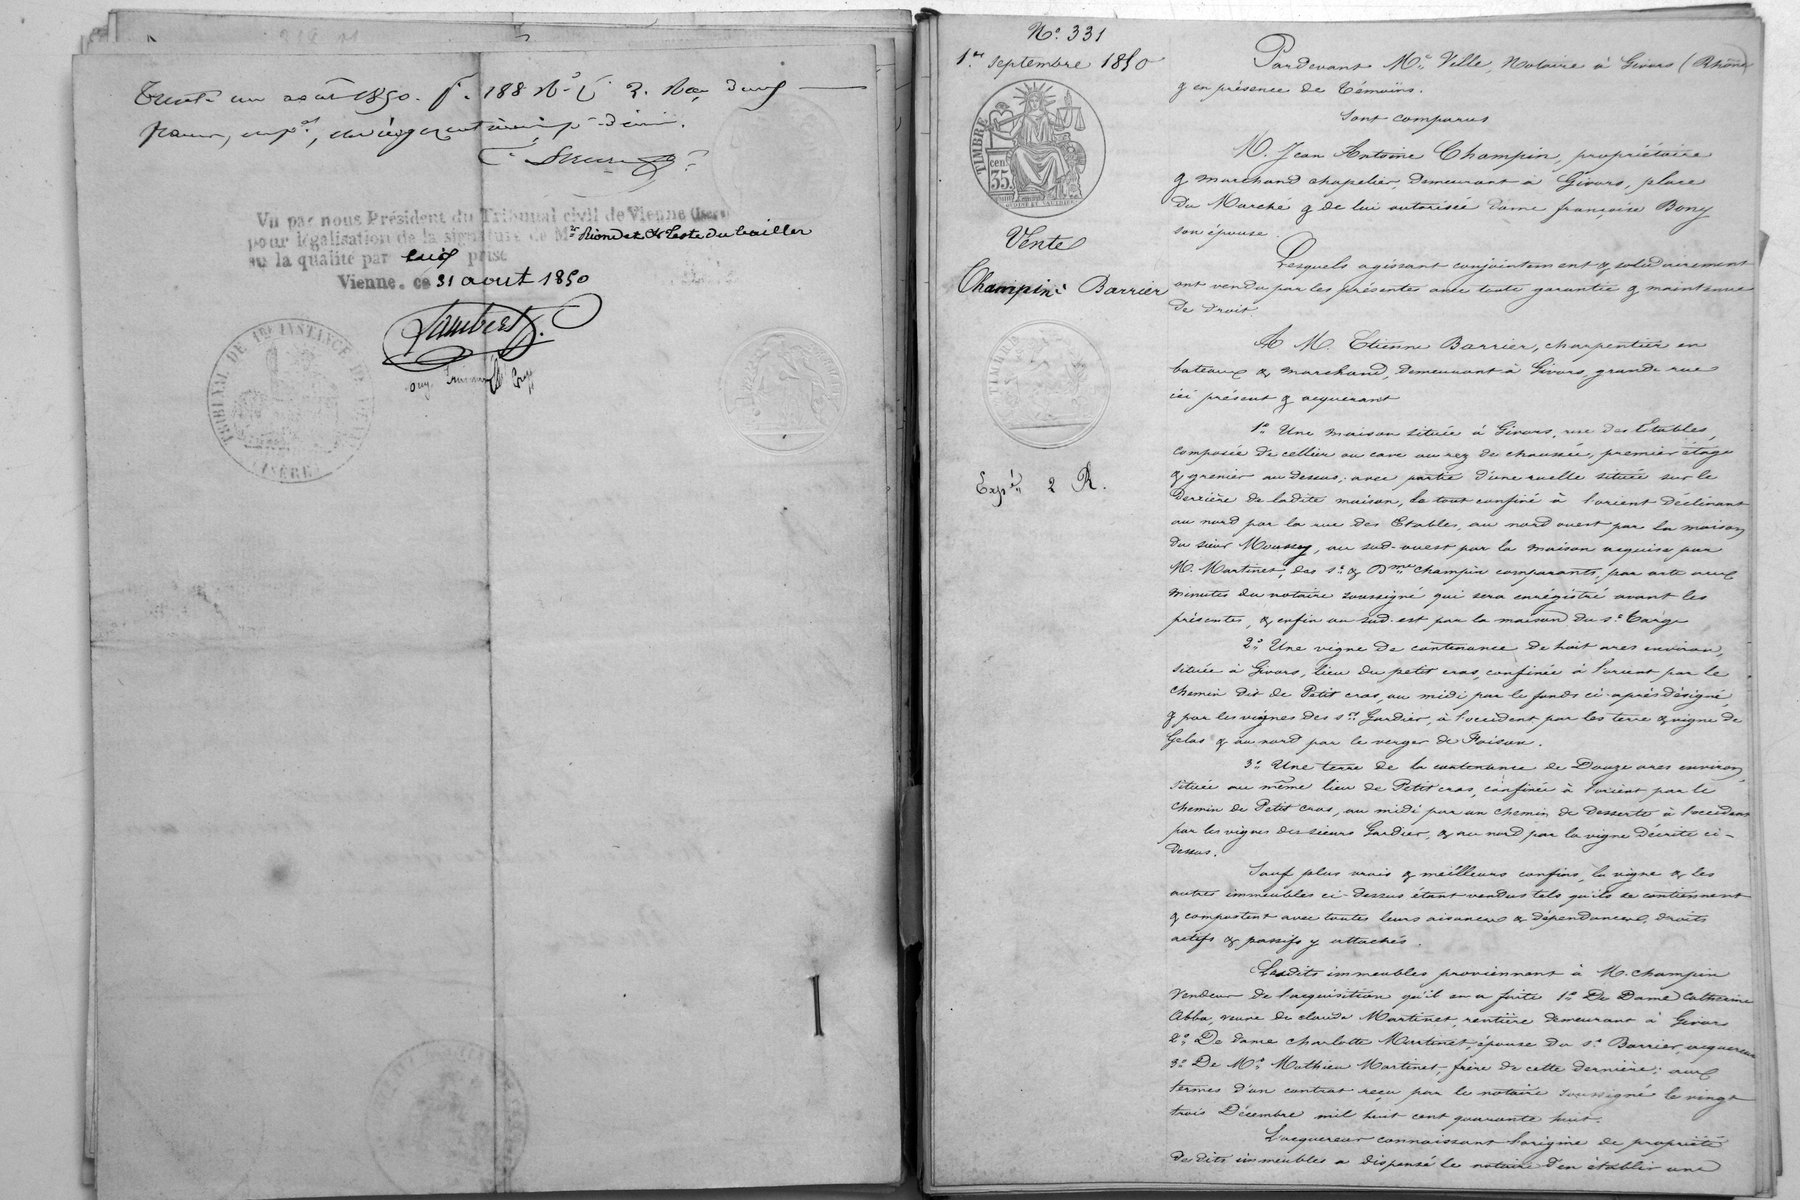 Trente un août 1850. f. 188 R° C. 2. Reçu deux
francs,
Vu par nous Président du Tribunal civil de Vienne (Isère)
pour légalisation de la signature de Mrs Riondet & Teste du Bailler
en la qualité par eux prise
Vienne. ce 31 aout 1850
TRIBUNAL DE 1RE INSTANCE DE VIENNE
(ISÈRE)
N° 331
1er Septembre 1850
TIMBRE
35 cen
Vente
Champin à Barrier
TIMBRE
Expé 2 R.
Pardevant Me Ville, Notaire à Givors (Rhône
& en présence de Témoins.
Sont comparus
M. Jean Antoine Champin, propriétaire
& marchand chapelier, demeurant à Givors, place
du Marché & de lui autorisée Dame françoise Bony
son épouse.
Lesquels agissant conjointement & solidairement
ont vendu par les présentes avec toute garantie & maintenue
de droit.
A M. Etienne Barrier, charpentier en
bateaux & marchand, demeurant à Givors, grande rue
ici présent & acquerant
1° Une maison située à Givors, rue des Etables,
composée de cellier ou cave au rez de chaussée, premier étage
& grenier au dessus, avec partie d'une ruelle située sur le
derrière de ladite maison, le tout confiné à l'orient déclinant
au nord par la rue des Etables, au nord ouest par la maison
du sieur Moussy, au sud-ouest par la maison acquise par
M. Martinet, des sr & Dme Champin comparants, par acte aux
minutes du notaire soussigné qui sera enrégistré avant les
présentes, & enfin au sud-est par la maison du sr Targe
2° Une vigne de contenance de huit ares environ,
située à Givors, lieu du petit cras, confinée à l'orient par le
chemin dit de Petit cras, au midi par le fonds ci-après désigné,
& par les vignes des srs Gardier, à l'occident par les terre & vigne de
Gelas & au nord par le verger de Foison.
3° Une terre de la contenance de Douze ares environ,
située au même lieu de Petit cras, confinée à l'orient par le
chemin de Petit cras, au midi par un chemin de desserte à l'occident
par les vignes des sieurs Gardier, & au nord par la vigne décrite ci-
dessus.
Sauf plus vrais & meilleurs confins, la vigne & les
autres immeubles ci-dessus étant vendus tels qu'ils se contiennent
& comportent avec toutes leurs aisances & dépendances, droits
actifs & passifs y attachés.
Lesdits immeubles proviennent à M. Champin
vendeur de l'acquisition qu'il en a faite 1° De Dame Catherine
Abba, veuve de claude Martinet, rentière demeurant à Givors
2° De dame charlotte Martinet, épouse du sr Barrier, acquereur
3° De Mr Mathieu Martinet, frère de cette dernière; aux
termes d'un contrat reçu par le notaire soussigné le vingt
trois Décembre mil huit cent quarante huit.
L'acquereur connaissant l'origine de propriété
desdits immeubles a dispensé le notaire d'en établir une